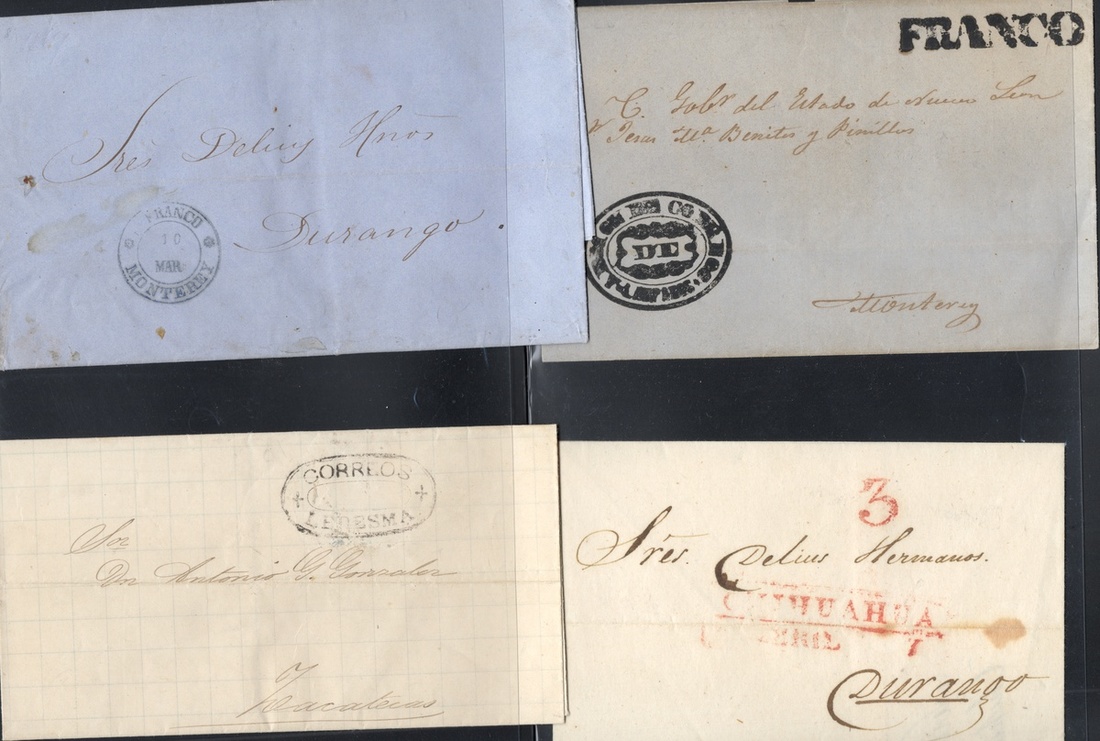 Srēs Delius Hnōs
Durango.
FRANCO
10
MAR
MONTEREY
FRANCO
C. Gobr. del Estado de Nuevo Leon
Jesus Ma. Benites y Pinillos
DE
Monterey
CORREOS
LEDESMA
Sor
Dn Antonio G. Gonzalez
Zacatecas
3
Sres. Delius Hermanos.
CHIHUAHUA
ABRIL 7
Durango